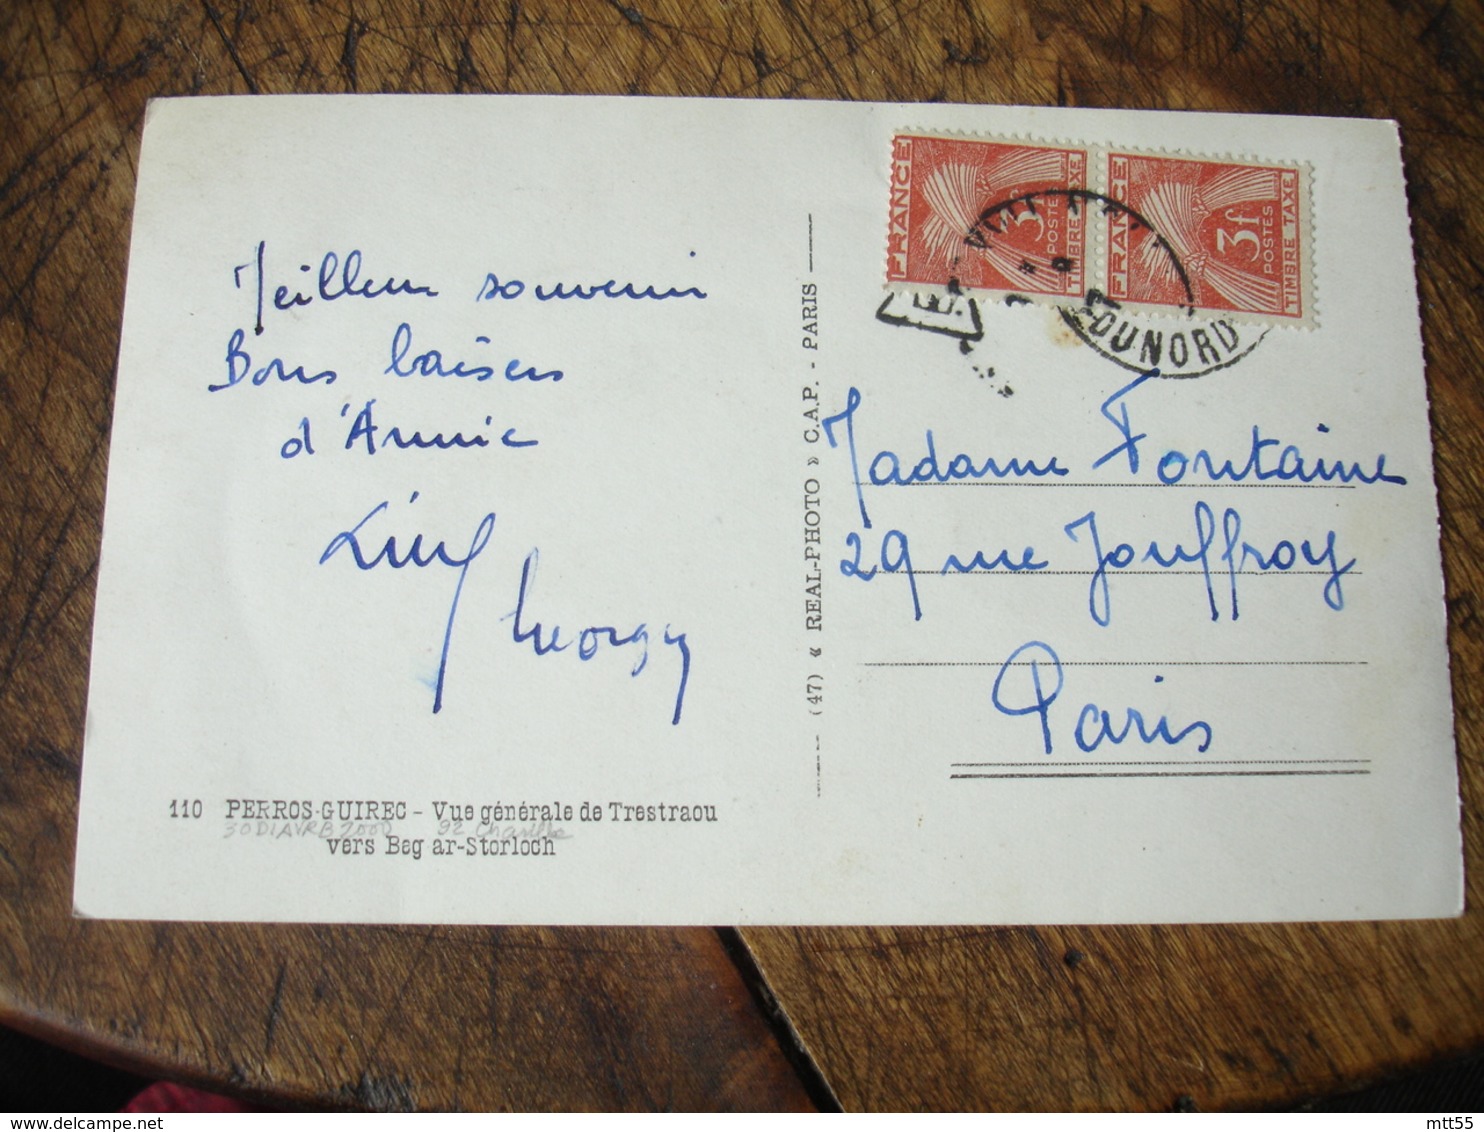 Meilleur souvenir
Bons baisers
d'Annie
Georgy
110 PERROS-GUIREC - Vue générale de Trestraou
vers Beg ar-Storloch
(47) « REAL-PHOTO » C.A.P. - PARIS
FRANCE 3f POSTES TIMBRE TAXE
FRANCE 3f POSTES TIMBRE TAXE
DUNORD
Madame Fontaine
29 rue Jouffroy
Paris
mtt55